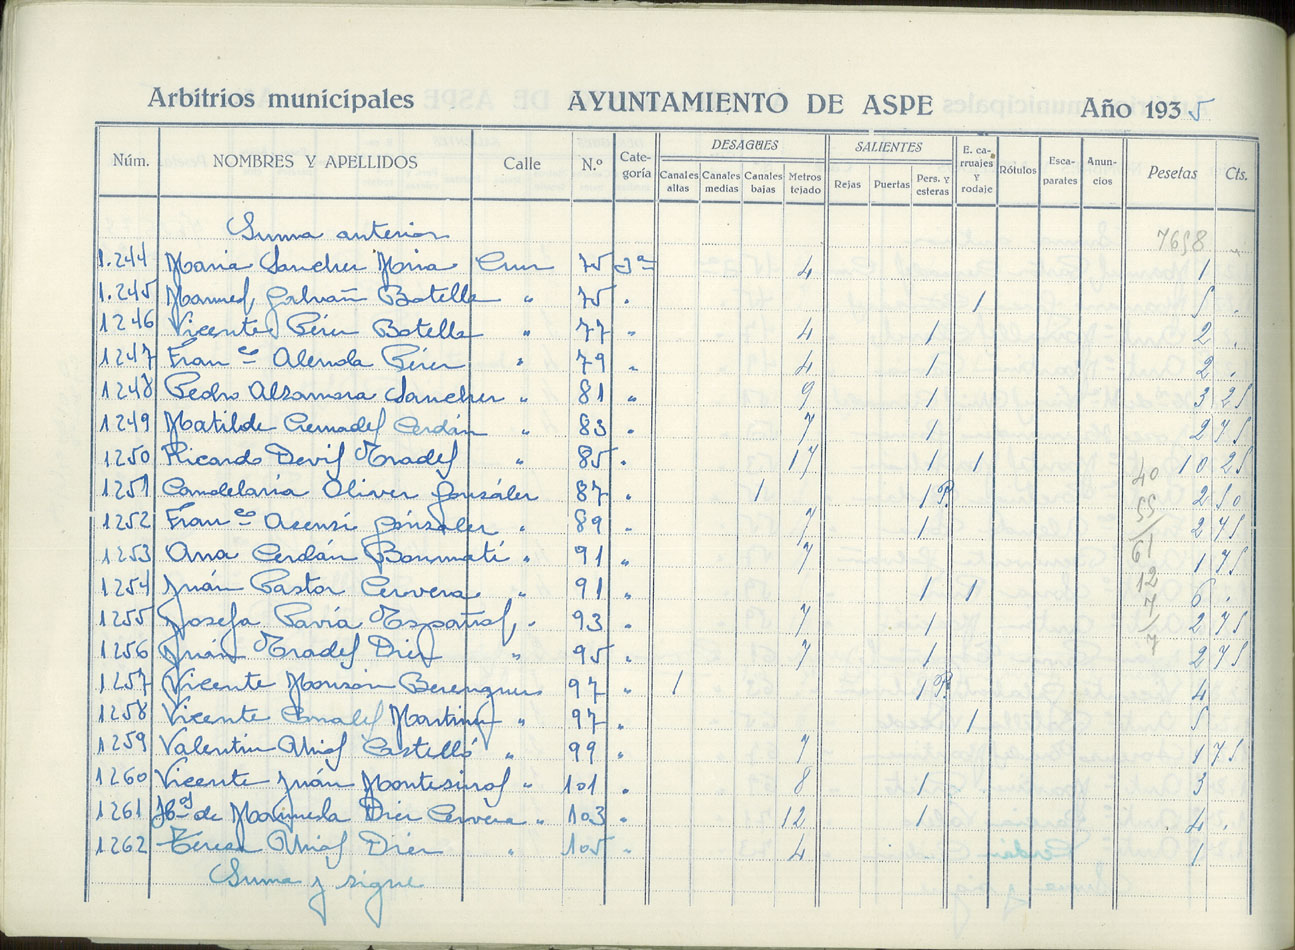 Arbitrios municipales AYUNTAMIENTO DE ASPE Año 1935
Núm. NOMBRES Y APELLIDOS Calle N.º Cate-goría DESAGÜES Canales altas Canales medias Canales bajas Metros tejado SALIENTES Rejas Puertas Pers. y esteras E. ca-rruajes y rodaje Rótulos Esca-parates Anun-cios Pesetas Cts.
Suma anterior 7658
1.244 Maria Sanchez Mira Cruz 75 3ª 4 1
1.245 Manuel Galvañ Botella " 75 " 1 5 .
1246 Vicente Pérez Botella " 77 " 4 1 2 .
1247 Franco Alenda Pérez " 79 " 4 1 2 .
1248 Pedro Alzamora Sanchez " 81 " 9 1 3 25
1249 Matilde Cremades Cerdán " 83 " 7 1 2 75
1250 Ricardo Devis Prades " 85 " 17 1 1 10 25
1251 Candelaria Oliver González 87 " 1 1 P. 2 50
1252 Franco Asensi González " 89 " 7 1 2 75
1253 Ana Cerdán Bonmatí " 91 " 7 1 75
1254 Juán Pastor Cervera " 91 " 1 1 6 .
1255 Josefa Pavía Español, " 93 " 7 1 2 75
1256 Juán Prades Diez " 95 " 7 1 2 75
1257 Vicente Monzón Berenguer 97 " 1 1 P. 4
1258 Vicente Canals Martinez " 97 " 1 5
1259 Valentin Castelló " 99 " 7 1 75
1260 Vicente Juán Montesinos " 101 " 8 1 3
1261 de Diez Cervera " 103 " 12 1 4 .
1262 Teresa Diez " 105 " 4 1
Suma y sigue
40
55
61
12
7
7